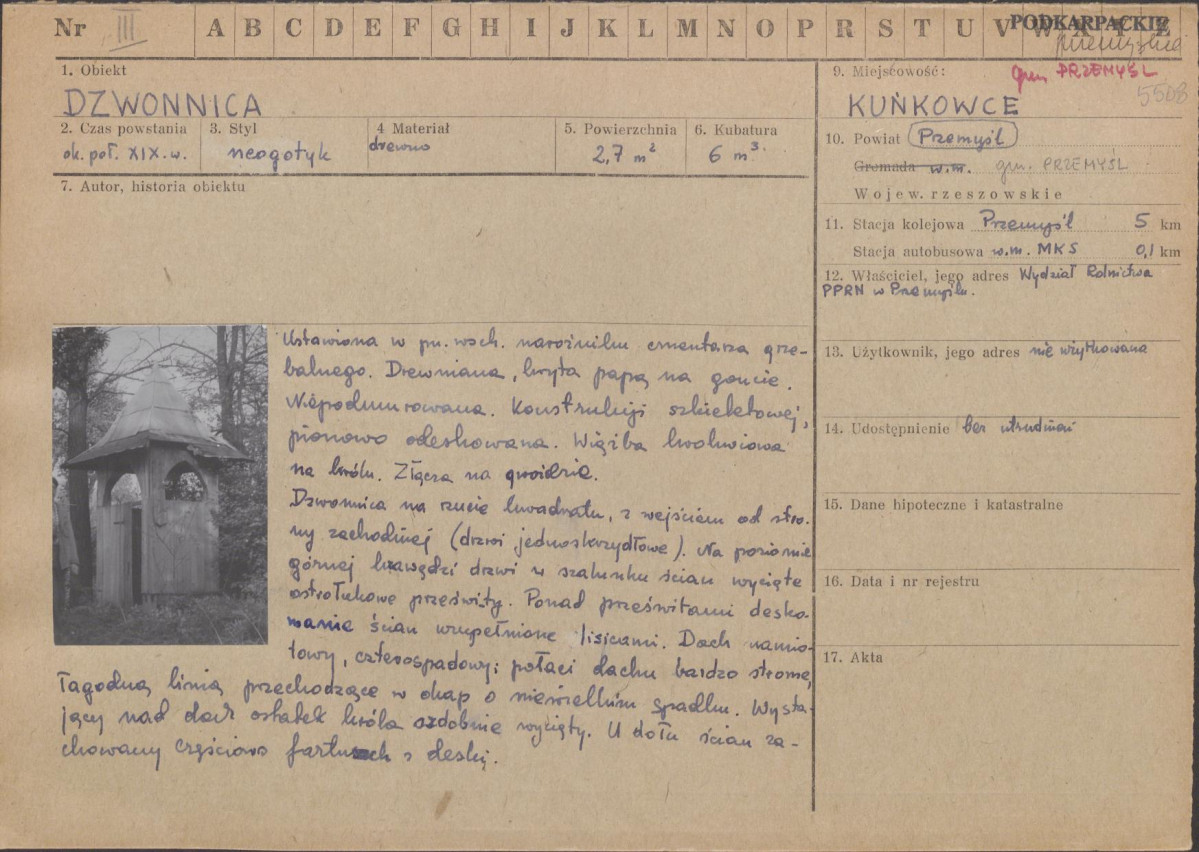 Nr III A B C D E F G H I J K L M N O P R S T U V W X Y Z
PODKARPACKIE
1. Obiekt
DZWONNICA
2. Czas powstania
ok. poł. XIX. w.
3. Styl
neogotyk
4 Materiał
drewno
5. Powierzchnia
2,7 m²
6. Kubatura
6 m³.
7. Autor, historia obiektu
Ustawiona w pn. wsch. narożniku cmentarza grze-
balnego. Drewniana, kryta papą na goncie.
Niepodmurowana. Konstrukcji szkieletowej,
pionowo odeskowana. Więźba krokwiowa
na królu. Złącza na gwoździe.
Dzwonnica na rzucie kwadratu, z wejściem od stro-
ny zachodniej (drzwi jednoskrzydłowe). Na poziomie
górnej krawędzi drzwi w szalunku ścian wycięte
ostrołukowe prześwity. Ponad prześwitami desko-
wanie ścian uzupełnione lisicami. Dach namio-
towy, czterospadowy; połaci dachu bardzo strome,
łagodną linią przechodzące w okap o niewielkim spadku. Wysta-
jący nad dach ostatek króla ozdobnie wycięty. U dołu ścian za-
chowany częściowo fartuch z deski.
9. Miejscowość:
gm. PRZEMYŚL
5508
KUŃKOWCE
10. Powiat Przemyśl
Gromada w.m. gm. PRZEMYŚL
Wojew. rzeszowskie
11. Stacja kolejowa Przemyśl 5 km
Stacja autobusowa w.m. MKS 0,1 km
12. Właściciel, jego adres Wydział Rolnictwa
PPRN w Przemyślu.
13. Użytkownik, jego adres nie użytkowana
14. Udostępnienie bez utrudnień
15. Dane hipoteczne i katastralne
16. Data i nr rejestru
17. Akta